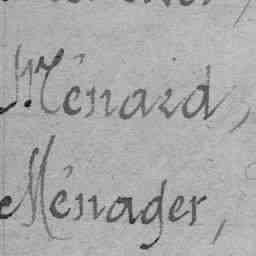 Ménard,
Ménager,